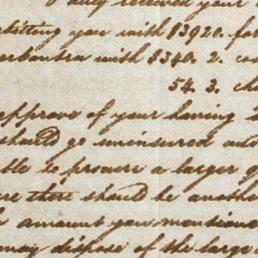 duly received your
you with $3920. for
with $340. 2.
54. 3.
approve of your having
should go uninsured
to procure a larger
there should be another
amount you mention
may dispose of the large